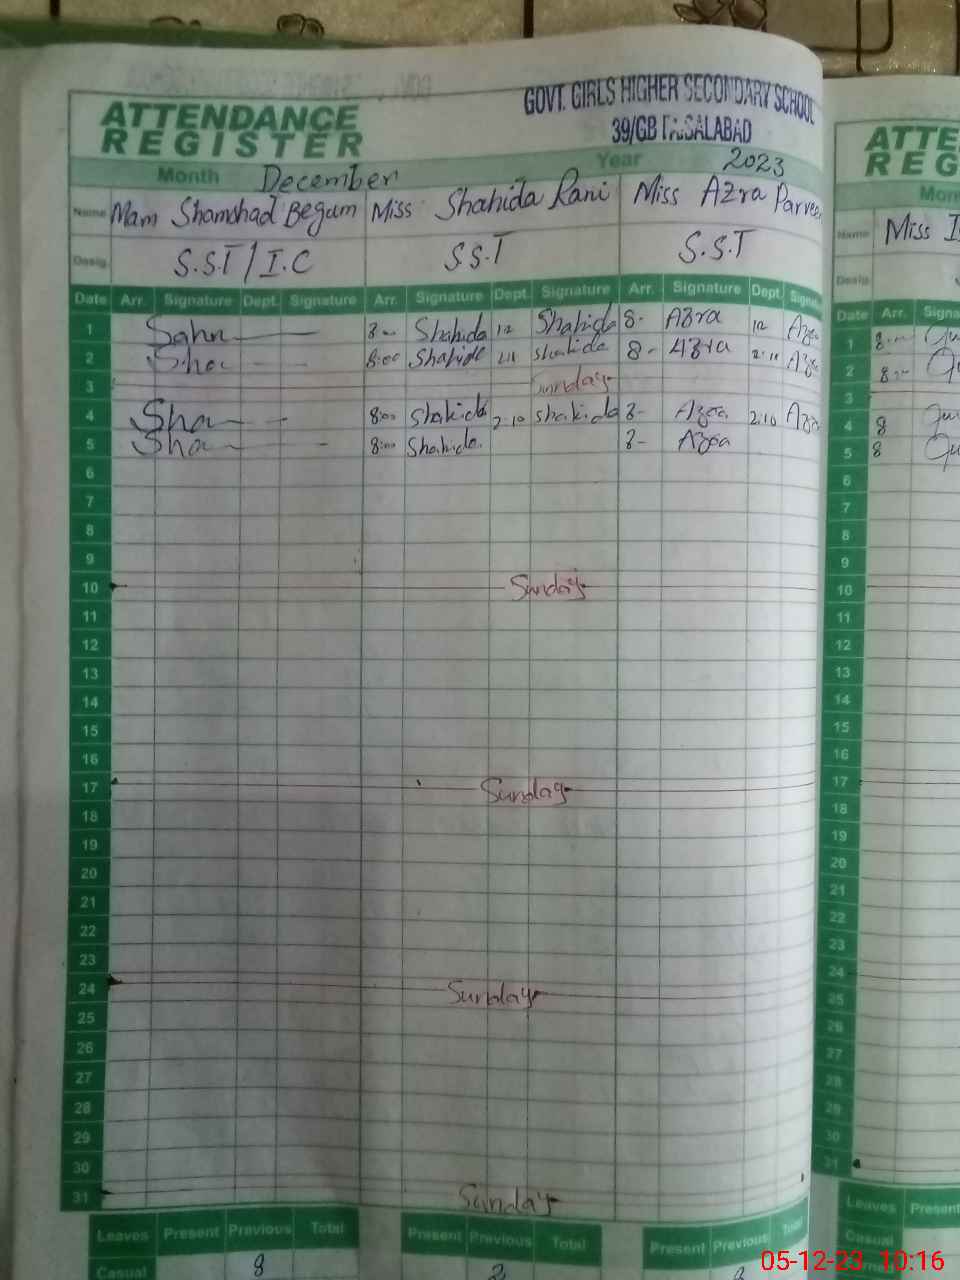 GOVT. GIRLS HIGHER SECONDARY SCHOOL
39/GB FAISALABAD
ATTENDANCE
REGISTER
Month December Year 2023
Name Mam Shamshad Begum Miss Shahida Rani Miss Azra Parveen
Desig. S.ST/I.C S.S.T S.S.T
Date Arr. Signature Dept. Signature Arr. Signature Dept. Signature Arr. Signature Dept. Signat
1 8- Shahida 12 Shahida 8- Azra 12 Azra
2 8:00 Shahida shahida 8- Azra 2:10 Azra
3 Sunday
4 Sha 8:00 Shahida 2:10 shahida 8- Azra 2:10 Azra
5 Sha 8:00 Shahida 8- Azra
6
7
8
9
10 Sunday
11
12
13
14
15
16
17 Sunday
18
19
20
21
22
23
24 Sunday
25
26
27
28
29
30
31 Sunday
Leaves Present Previous Total Present Previous Total Present Previous Total
Casual 8 2
ATTE
REG
Mon
Name Miss I
Desig
Date Arr. Signa
1 8-
2 8:-
3
4 8
5 8
6
7
8
9
10
11
12
13
14
15
16
17
18
19
20
21
22
23
24
25
26
27
28
29
30
31
Leaves Present
Casual
05-12-23 10:16